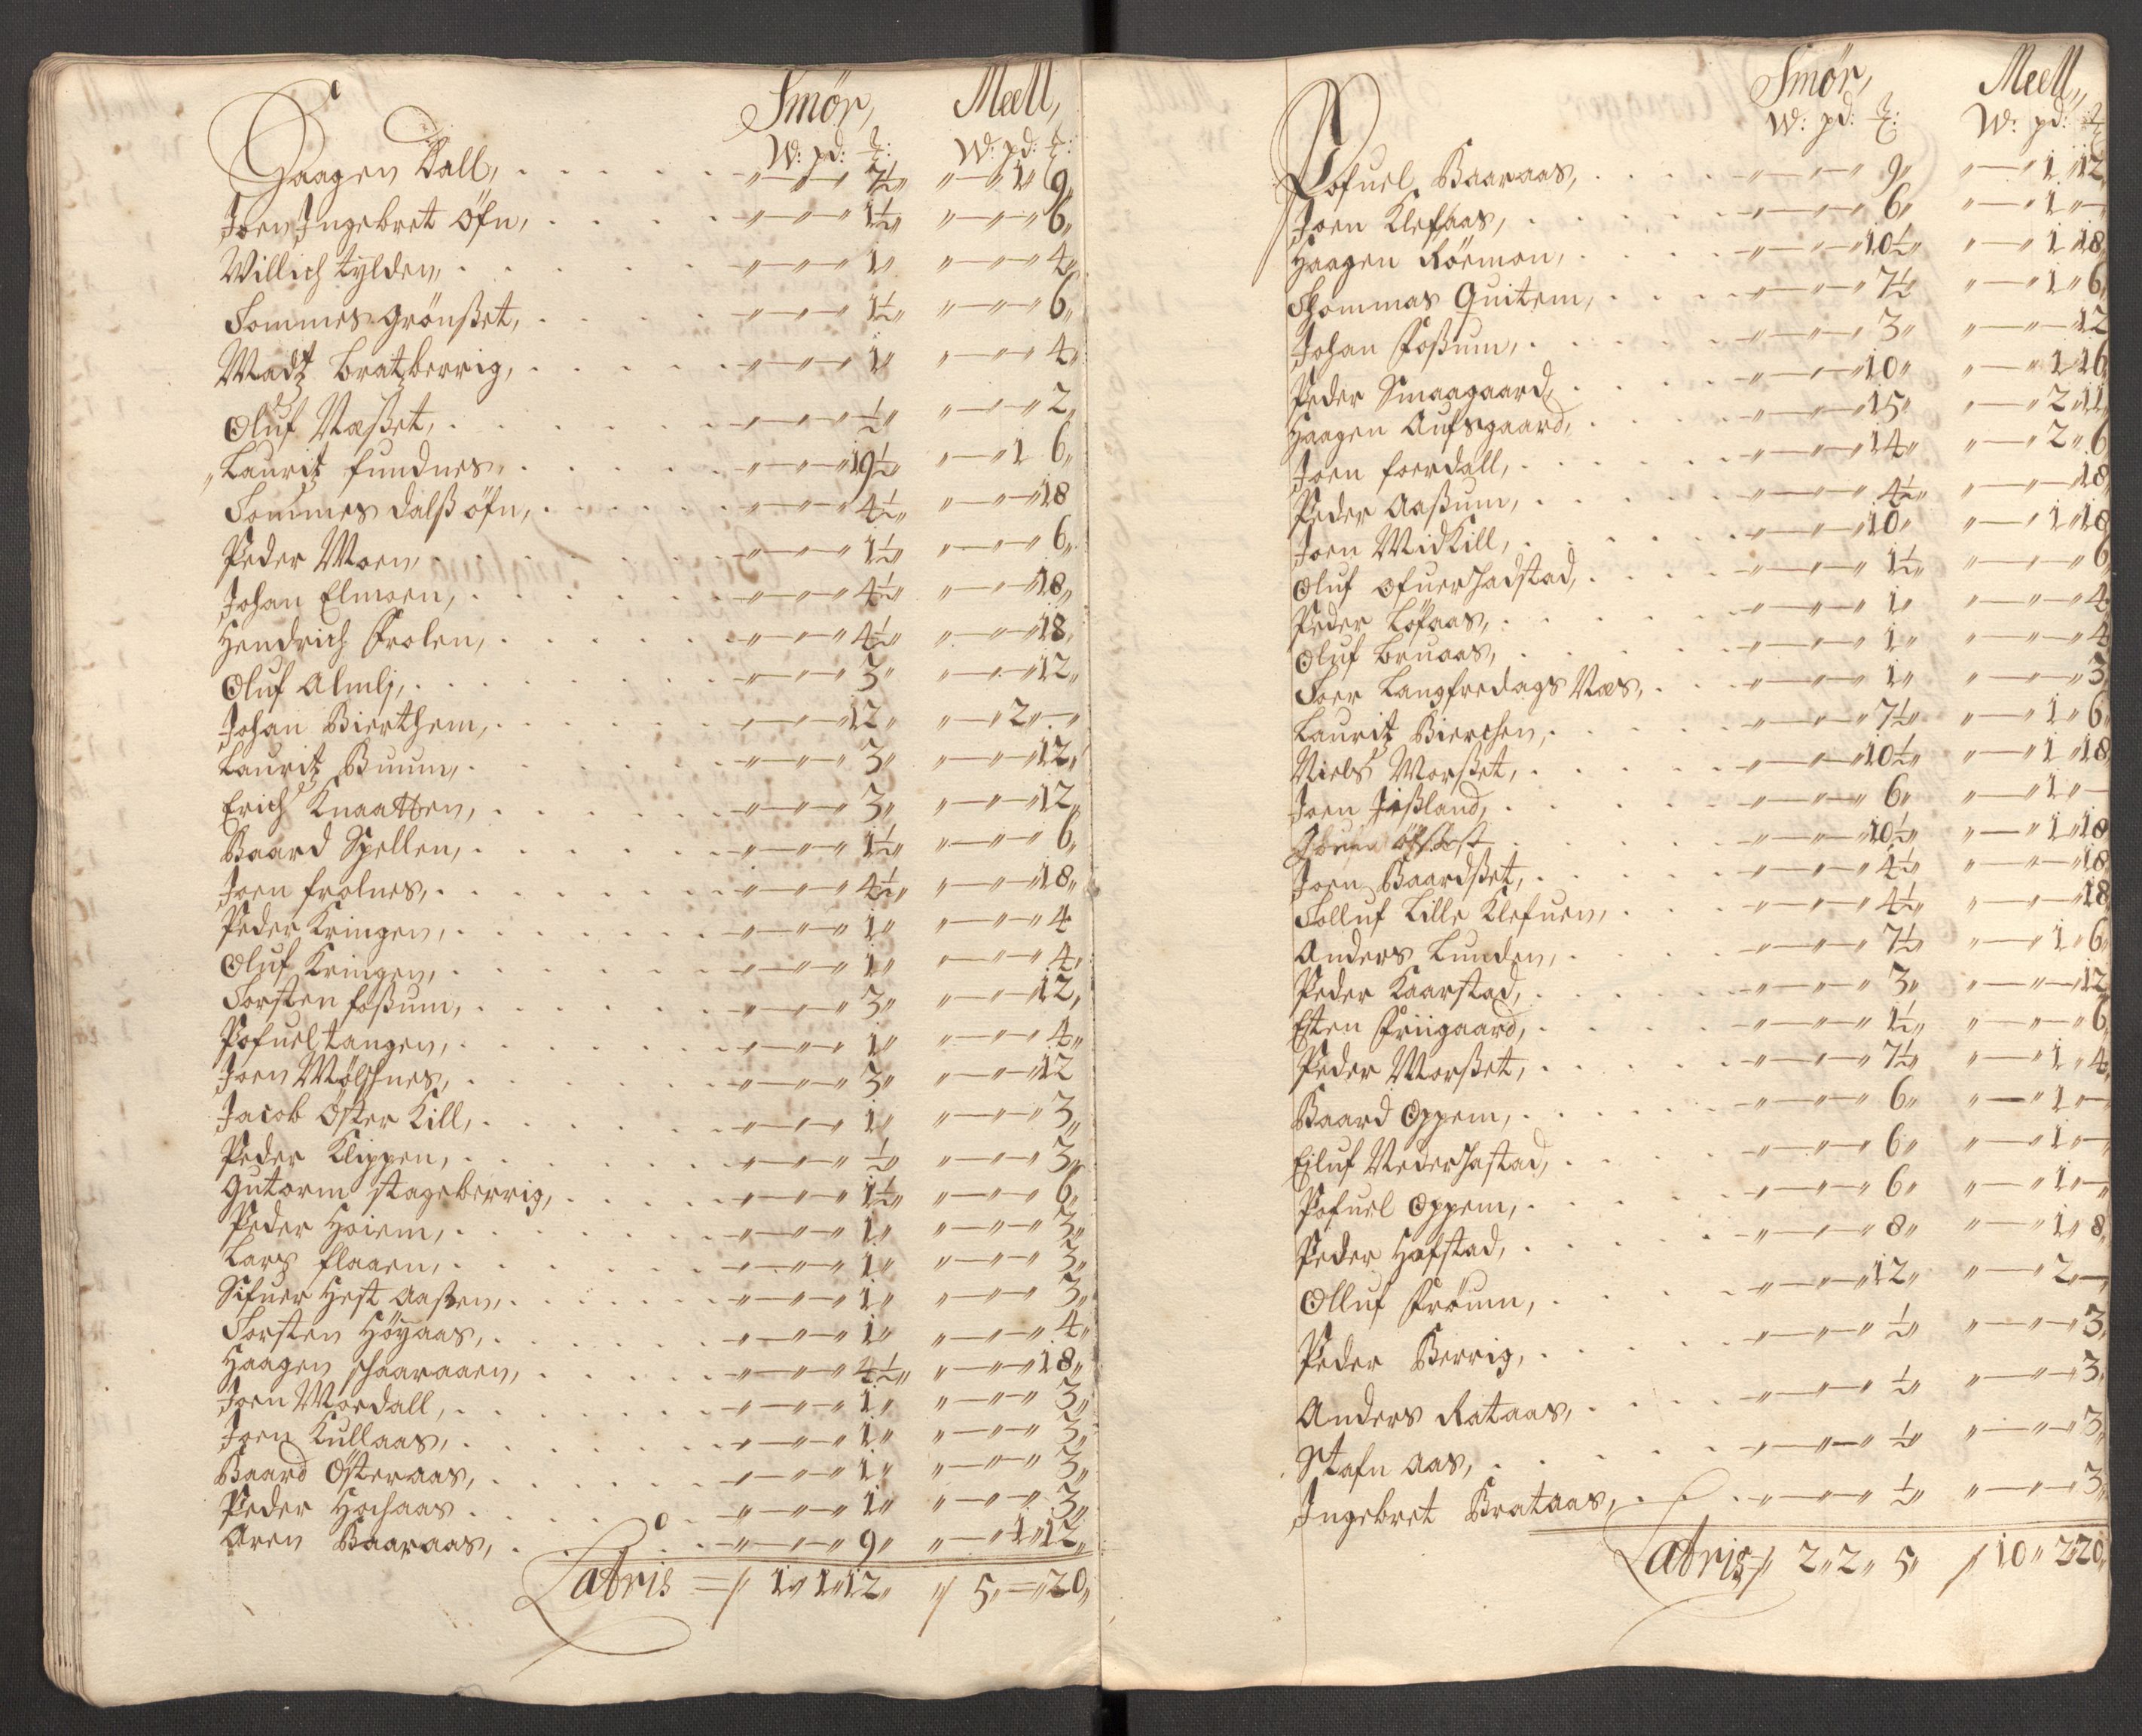 Smør, Meell,
W: pd: ℔: W: pd: ℔:
Haagen Dall, . . . . „—„—„ 7½„ „—„ 1„ 9„
Joen Ingebret Öfn, . . . . „—„—„ 1½„ „—„—„ 6„
Willich tylden, . . . . „—„—„ 1„ „—„—„ 4„
Tommes Grönßet, . . . . „—„—„ 1½„ „—„—„ 6„
Madtz Bratzberrig, . . . . „—„—„ 1„ „—„—„ 4„
Oluf Næßet, . . . . „—„—„ ½„ „—„—„ 2„
Lauritz fundnes, . . . . „—„—„ 19½„ „—„ 1 6„
Tommes Dalß öfn, . . . . „—„—„ 4½„ „—„—„ 18
Peder Moen, . . . . „—„—„ 1½„ „—„—„ 6„
Johan Elmoen, . . . . „—„—„ 4½„ „—„—„ 18„
Hendrich Frolen, . . . . „—„—„ 4½„ „—„—„ 18„
Oluf Almlj, . . . . „—„—„ 3„ „—„—„ 12„
Johan Bierthem, . . . . „—„—„ 12„ „—„ 2„—„
Lauritz Buum, . . . . „—„—„ 3„ „—„—„ 12„
Erich Knaatten, . . . . „—„—„ 3„ „—„—„ 12„
Baard Spellen, . . . . „—„—„ 1½„ „—„—„ 6„
Joen frolnes, . . . . „—„—„ 4½„ „—„—„ 18„
Peder Kringen, . . . . „—„—„ 1„ „—„—„ 4
Oluf Kringen, . . . . „—„—„ 1„ „—„—„ 4„
Torsten foßum, . . . . „—„—„ 3„ „—„—„ 12„
Pofuel tangen, . . . . „—„—„ 1„ „—„—„ 4„
Joen Mölshnes, . . . . „—„—„ 3„ „—„—„ 12
Jacob Öster Kill, . . . . „—„—„ 1„ „—„—„ 3„
Peder Klippen, . . . . „—„—„ ½„ „—„—„ 3„
Gutorm stageberrig, . . . . „—„—„ 1½„ „—„—„ 6„
Peder Hoiem, . . . . „—„—„ 1„ „—„—„ 3„
Lars flaaen, . . . . „—„—„ 1„ „—„—„ 3„
Sifuer Hest Aaßen, . . . . „—„—„ 1„ „—„—„ 3„
Torsten Höyaas, . . . . „—„—„ 1„ „—„—„ 4„
Haagen schaaraaen, . . . . „—„—„ 4½„ „—„—„ 18„
Joen Mordall, . . . . „—„—„ 1„ „—„—„ 3„
Joen Kullaas, . . . . „—„—„ 1„ „—„—„ 3„
Baard Österaas, . . . . „—„—„ 1„ „—„—„ 3„
Peder Hochaas . . . . „—„—„ 1„ „—„—„ 3„
Aren Baaraas, . . . . „—„—„ 9„ „—„ 1„ 12„
Latris = / 1„ 1„ 12„ / 5„—„ 20„
Smør, Meell,
W: pd: ℔: W: pd: ℔
Pofuel Baaraas, . . . . „—„—„ 9„ „—„ 1„ 12„
Joen Klefaas, . . . . „—„—„ 6„ „—„ 1„—„
Haagen Röemon, . . . . „—„—„ 10½„ „—„ 1„ 18„
Thommas Quitem, . . . . „—„—„ 7½„ „—„ 1„ 6„
Johan Foßum, . . . . „—„—„ 3„ „—„—„ 12
Peder Smaagaard, . . . . „—„—„ 10„ „—„ 1„ 16
Haagen Aufsgaard, . . . . „—„—„ 15„ „—„ 2„ 11„
Joen foerdall, . . . . „—„—„ 14„ „—„ 2„ 6
Peder Aaßum, . . . . „—„—„ 4½„ „—„—„ 18„
Joen MidKill, . . . . „—„—„ 10„ „—„ 1„ 18
Oluf Ofuerhadstad, . . . . „—„—„ 1½„ „—„—„ 6
Peder Löfaas, . . . . „—„—„ 1„ „—„—„ 4
Oluf Bruaas, . . . . „—„—„ 1„ „—„—„ 4
Toer Langfredags Næs, . . . „—„—„ 1„ „—„—„ 3
Lauritz Bierchen, . . . . „—„—„ 7½„ „—„ 1„ 6„
Niels Morßet, . . . . „—„—„ 10½„ „—„ 1„ 18
Joen Jißland, . . . . „—„—„ 6„ „—„ 1„—
. . . . „—„—„ 10½„ „—„ 1„ 18
Joen Baardßet, . . . . „—„—„ 4½„ „—„—„ 18
Tolluf Lille Klefuen, . . . „—„—„ 4½„ „—„—„ 18
Anders Lunden, . . . . „—„—„ 7½„ „—„ 1„ 6„
Peder Kaarstad, . . . . „—„—„ 3„ „—„—„ 12„
Esten Friigaard, . . . . „—„—„ 1½„ „—„—„ 6„
Peder Morßet, . . . . „—„—„ 7½„ „—„ 1„ 4„
Baard Oppem, . . . . „—„—„ 6„ „—„ 1„—„
Eiluf Nederhastad, . . . . „—„—„ 6„ „—„ 1„—„
Pofuel Oppem, . . . . „—„—„ 6„ „—„ 1„—„
Peder Hofstad, . . . . „—„—„ 8„ „—„ 1„ 8„
Olluf Fröum, . . . . „—„—„ 12„ „—„ 2„—„
Peder Berrig, . . . . „—„—„ ½„ „—„—„ 3„
Anders Rataas, . . . . „—„—„ ½„ „—„—„ 3„
Stafn Aas, . . . . „—„—„ ½„ „—„—„ 3„
Ingebret Brataas, . . . . „—„—„ ½„ „—„—„ 3„
Latris / 2„ 2„ 5„ / 10„ 2„ 20„